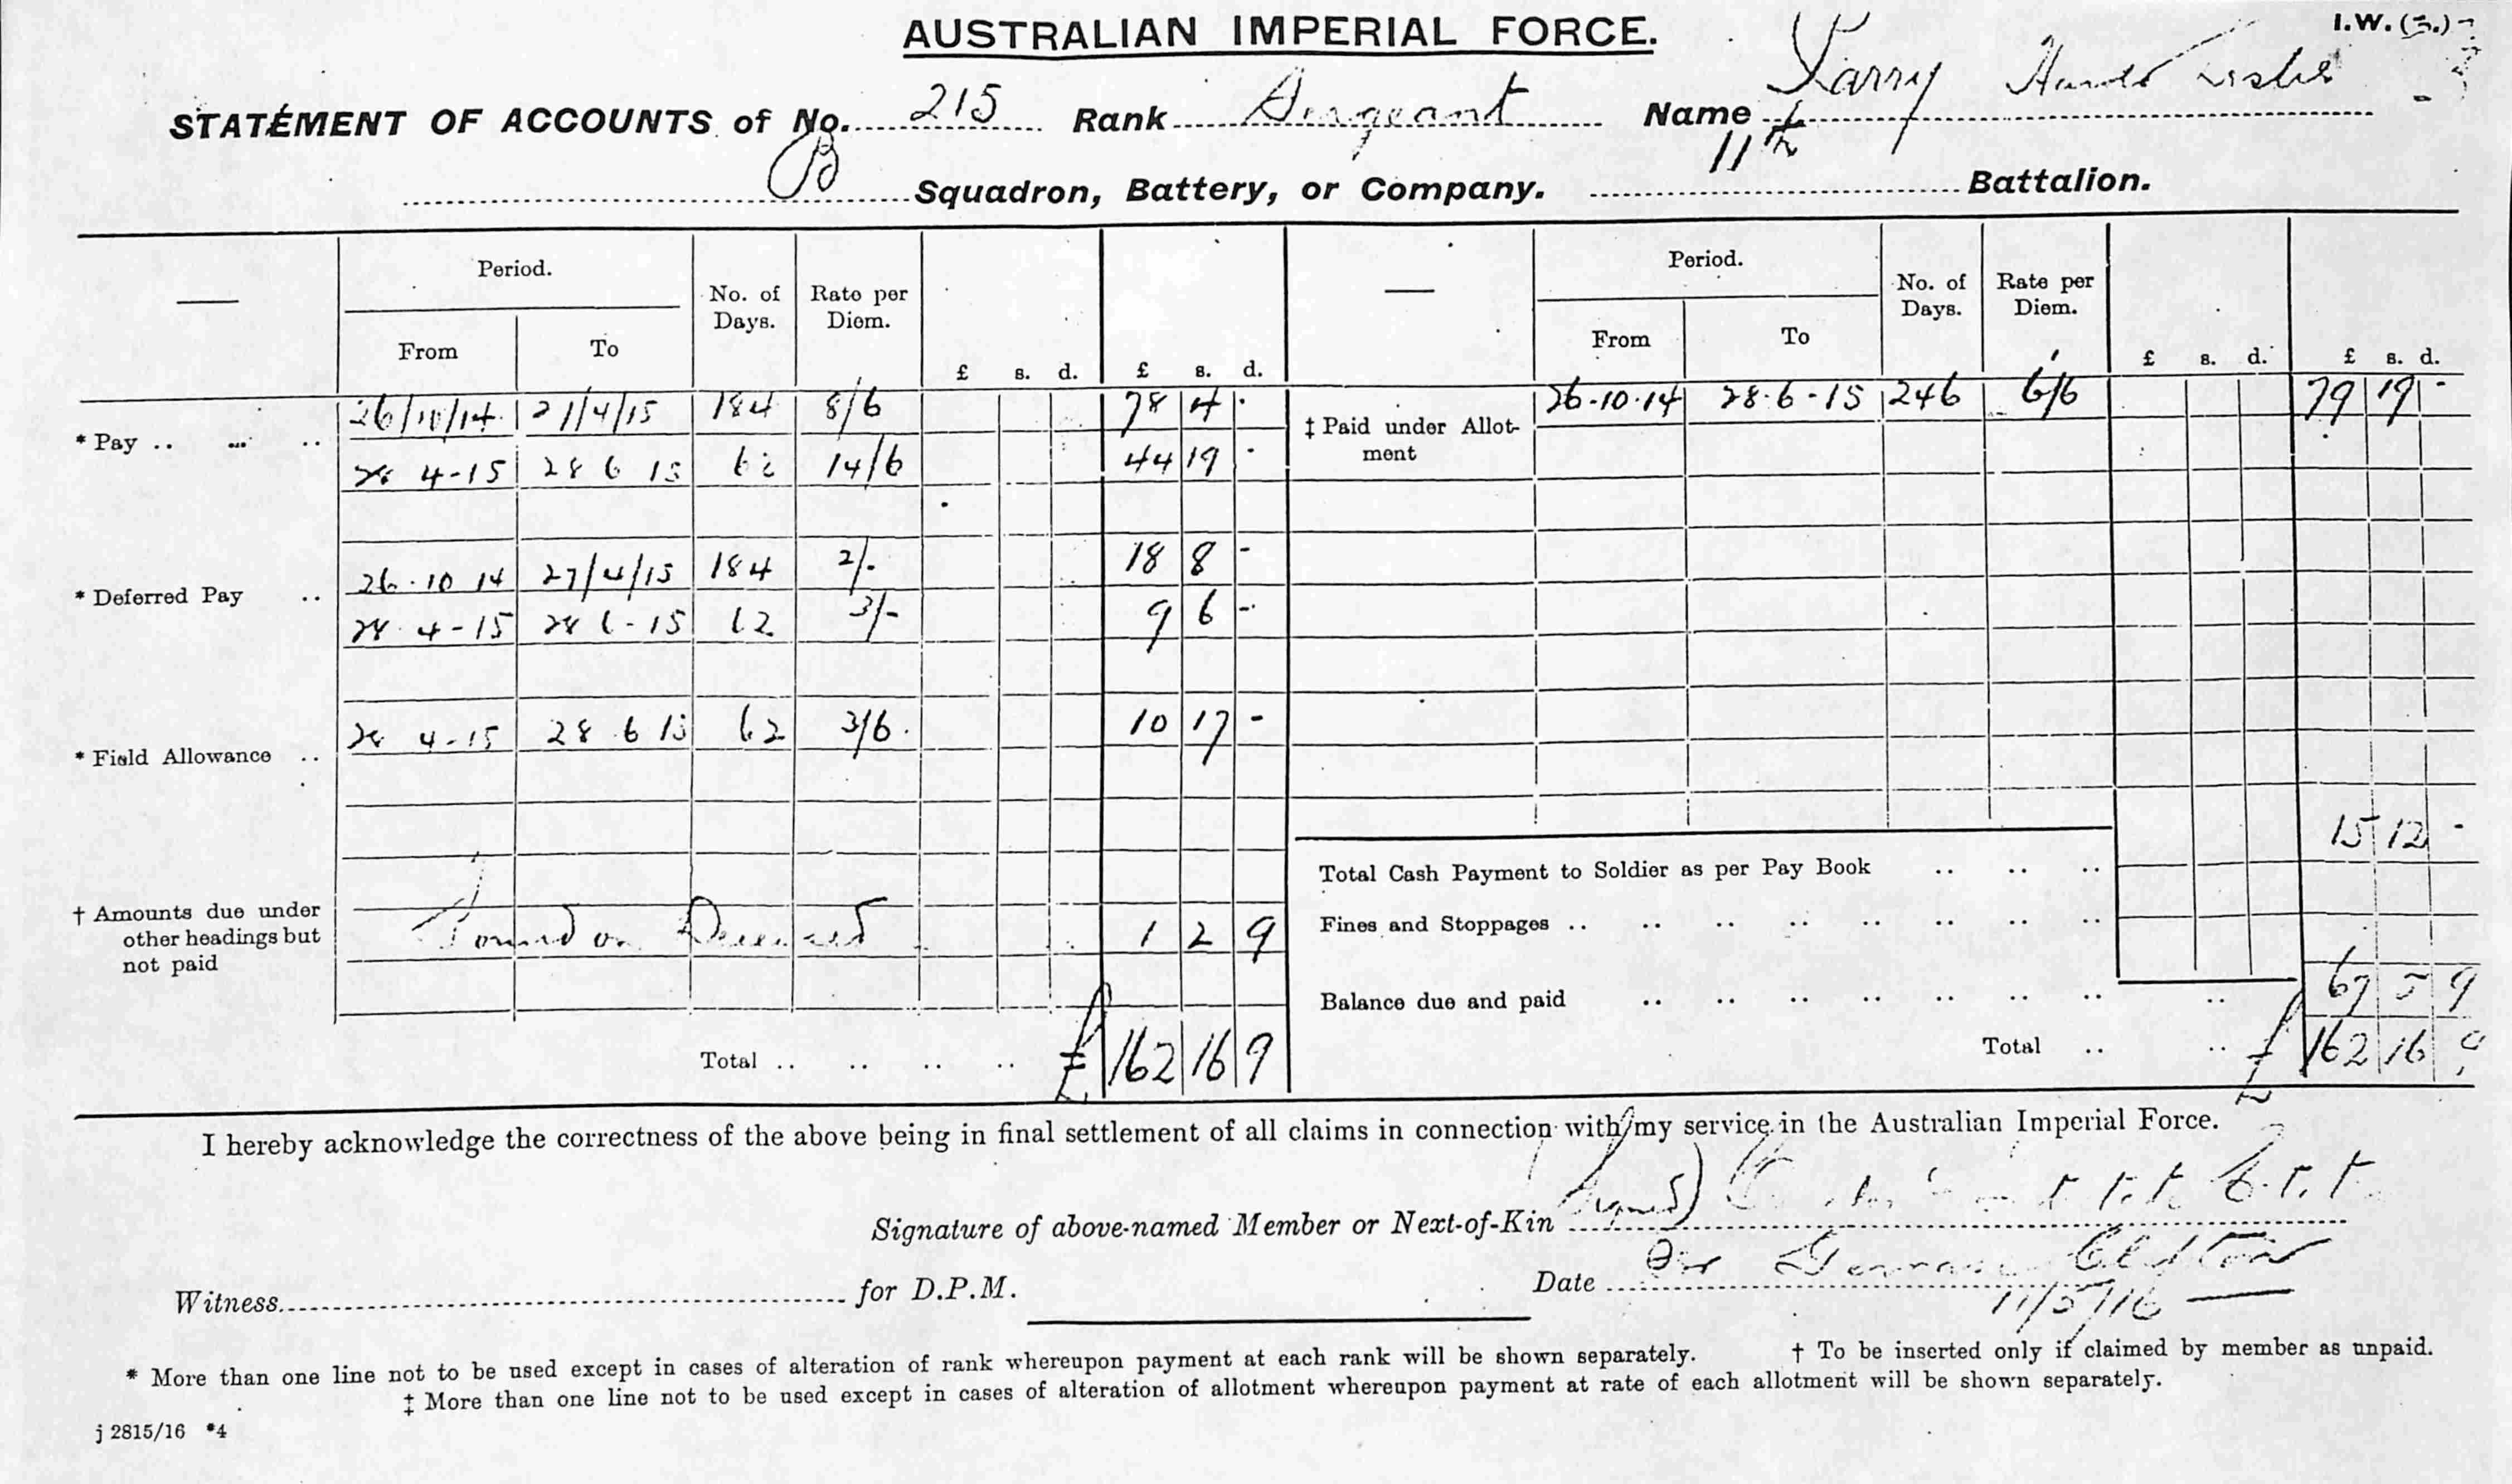 AUSTRALIAN IMPERIAL FORCE.
I.W. (3.)
STATEMENT OF ACCOUNTS of No. 215 Rank Sergeant Name Leslie
B Squadron, Battery, or Company. 11th Battalion.
Period. No. of Days. Rate per Diem.
From To £ s. d. £ s. d.
* Pay .. ... .. 26/10/14 27/4/15 184 8/6 78 4 -
28 4-15 28 6 15 62 14/6 44 19 -
* Deferred Pay .. 26.10 14 27/4/15 184 2/- 18 8 -
28.4-15 28 6-15 62 3/- 9 6 -
* Field Allowance .. 28 4-15 28 6 15 62 3/6 10 17 -
† Amounts due under other headings but not paid Found on Deceased 1 2 9
Total .. .. .. .. £ 162 16 9
Period. No. of Days. Rate per Diem.
From To £ s. d. £ s. d.
‡ Paid under Allotment 26-10-14 28-6-15 246 6/6 79 19 -
Total Cash Payment to Soldier as per Pay Book .. .. .. 15 12 -
Fines and Stoppages .. .. .. .. .. .. .. ..
Balance due and paid .. .. .. .. .. .. .. .. 67 5 9
Total .. .. £ 162 16 9
I hereby acknowledge the correctness of the above being in final settlement of all claims in connection with my service in the Australian Imperial Force.
Signature of above-named Member or Next-of-Kin (Signed)
Witness for D.P.M. Date Clifton
11/5/16
* More than one line not to be used except in cases of alteration of rank whereupon payment at each rank will be shown separately. † To be inserted only if claimed by member as unpaid.
‡ More than one line not to be used except in cases of alteration of allotment whereupon payment at rate of each allotment will be shown separately.
j 2815/16 *4